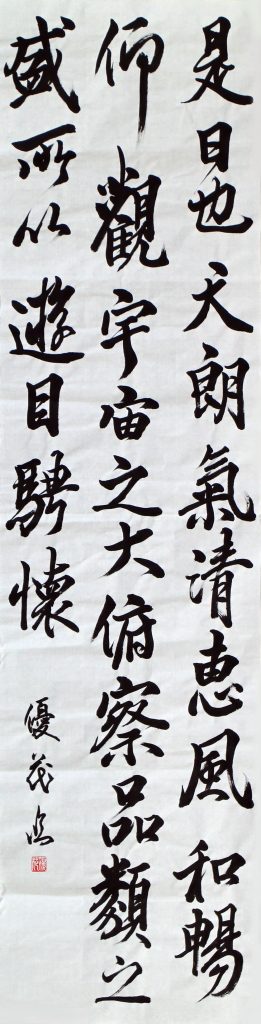 是日也天朗氣清恵風和暢
仰觀宇宙之大俯察品類之
盛所以遊目騁懐
優茂